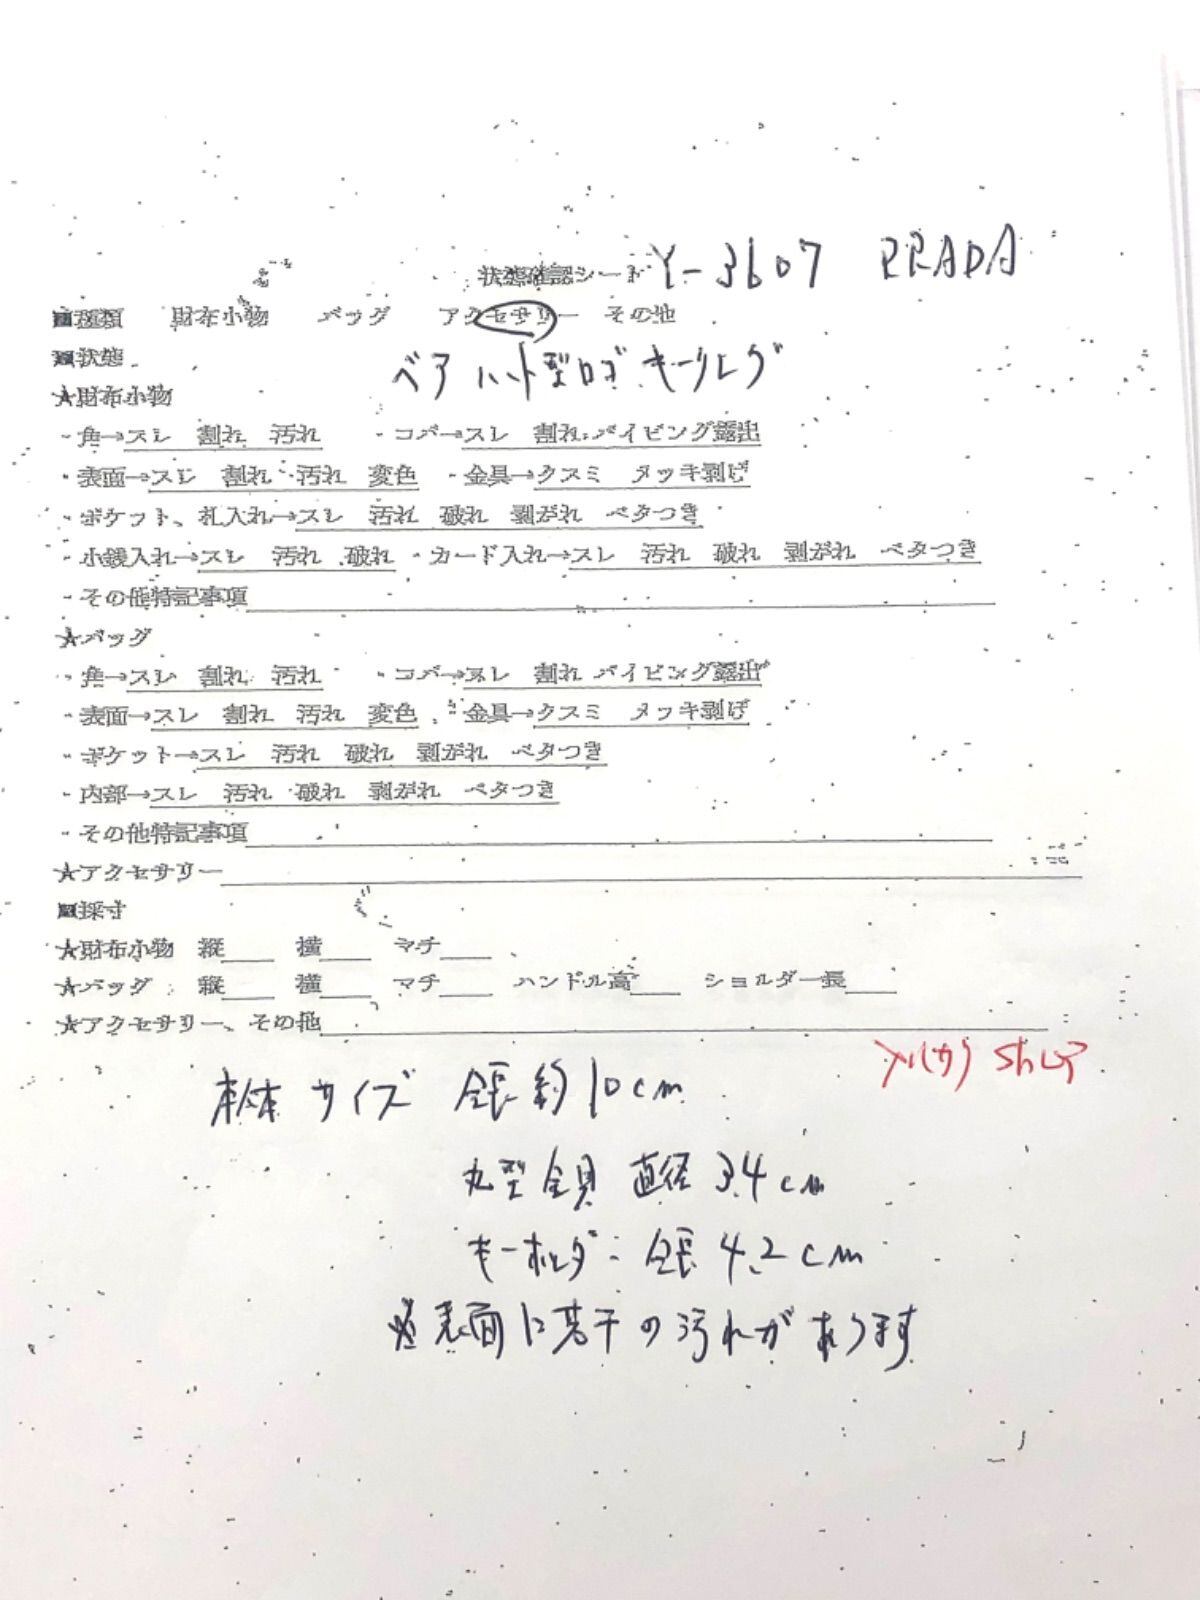 状態確認シート Y-3607 PRADA
■種類 財布小物 バッグ アクセサリー その他
■状態
ベア ハート型ロゴ キーリング
★財布小物
・角→スレ 割れ 汚れ ・コバ→スレ 割れ パイピング露出
・表面→スレ 割れ 汚れ 変色 ・金具→クスミ メッキ剥げ
・ポケット、札入れ→スレ 汚れ 破れ 剥がれ ベタつき
・小銭入れ→スレ 汚れ 破れ ・カード入れ→スレ 汚れ 破れ 剥がれ ベタつき
・その他特記事項
★バッグ
・角→スレ 割れ 汚れ ・コバ→スレ 割れ パイピング露出
・表面→スレ 割れ 汚れ 変色 ・金具→クスミ メッキ剥げ
・ポケット→スレ 汚れ 破れ 剥がれ ベタつき
・内部→スレ 汚れ 破れ 剥がれ ベタつき
・その他特記事項
★アクセサリー
■採寸
★財布小物 縦 横 マチ
★バッグ 縦 横 マチ ハンドル高 ショルダー長
★アクセサリー、その他
本体サイズ 全長約10cm
丸型金具 直径3.4cm
キーホルダー 全長4.2cm
表面に若干の汚れがあります